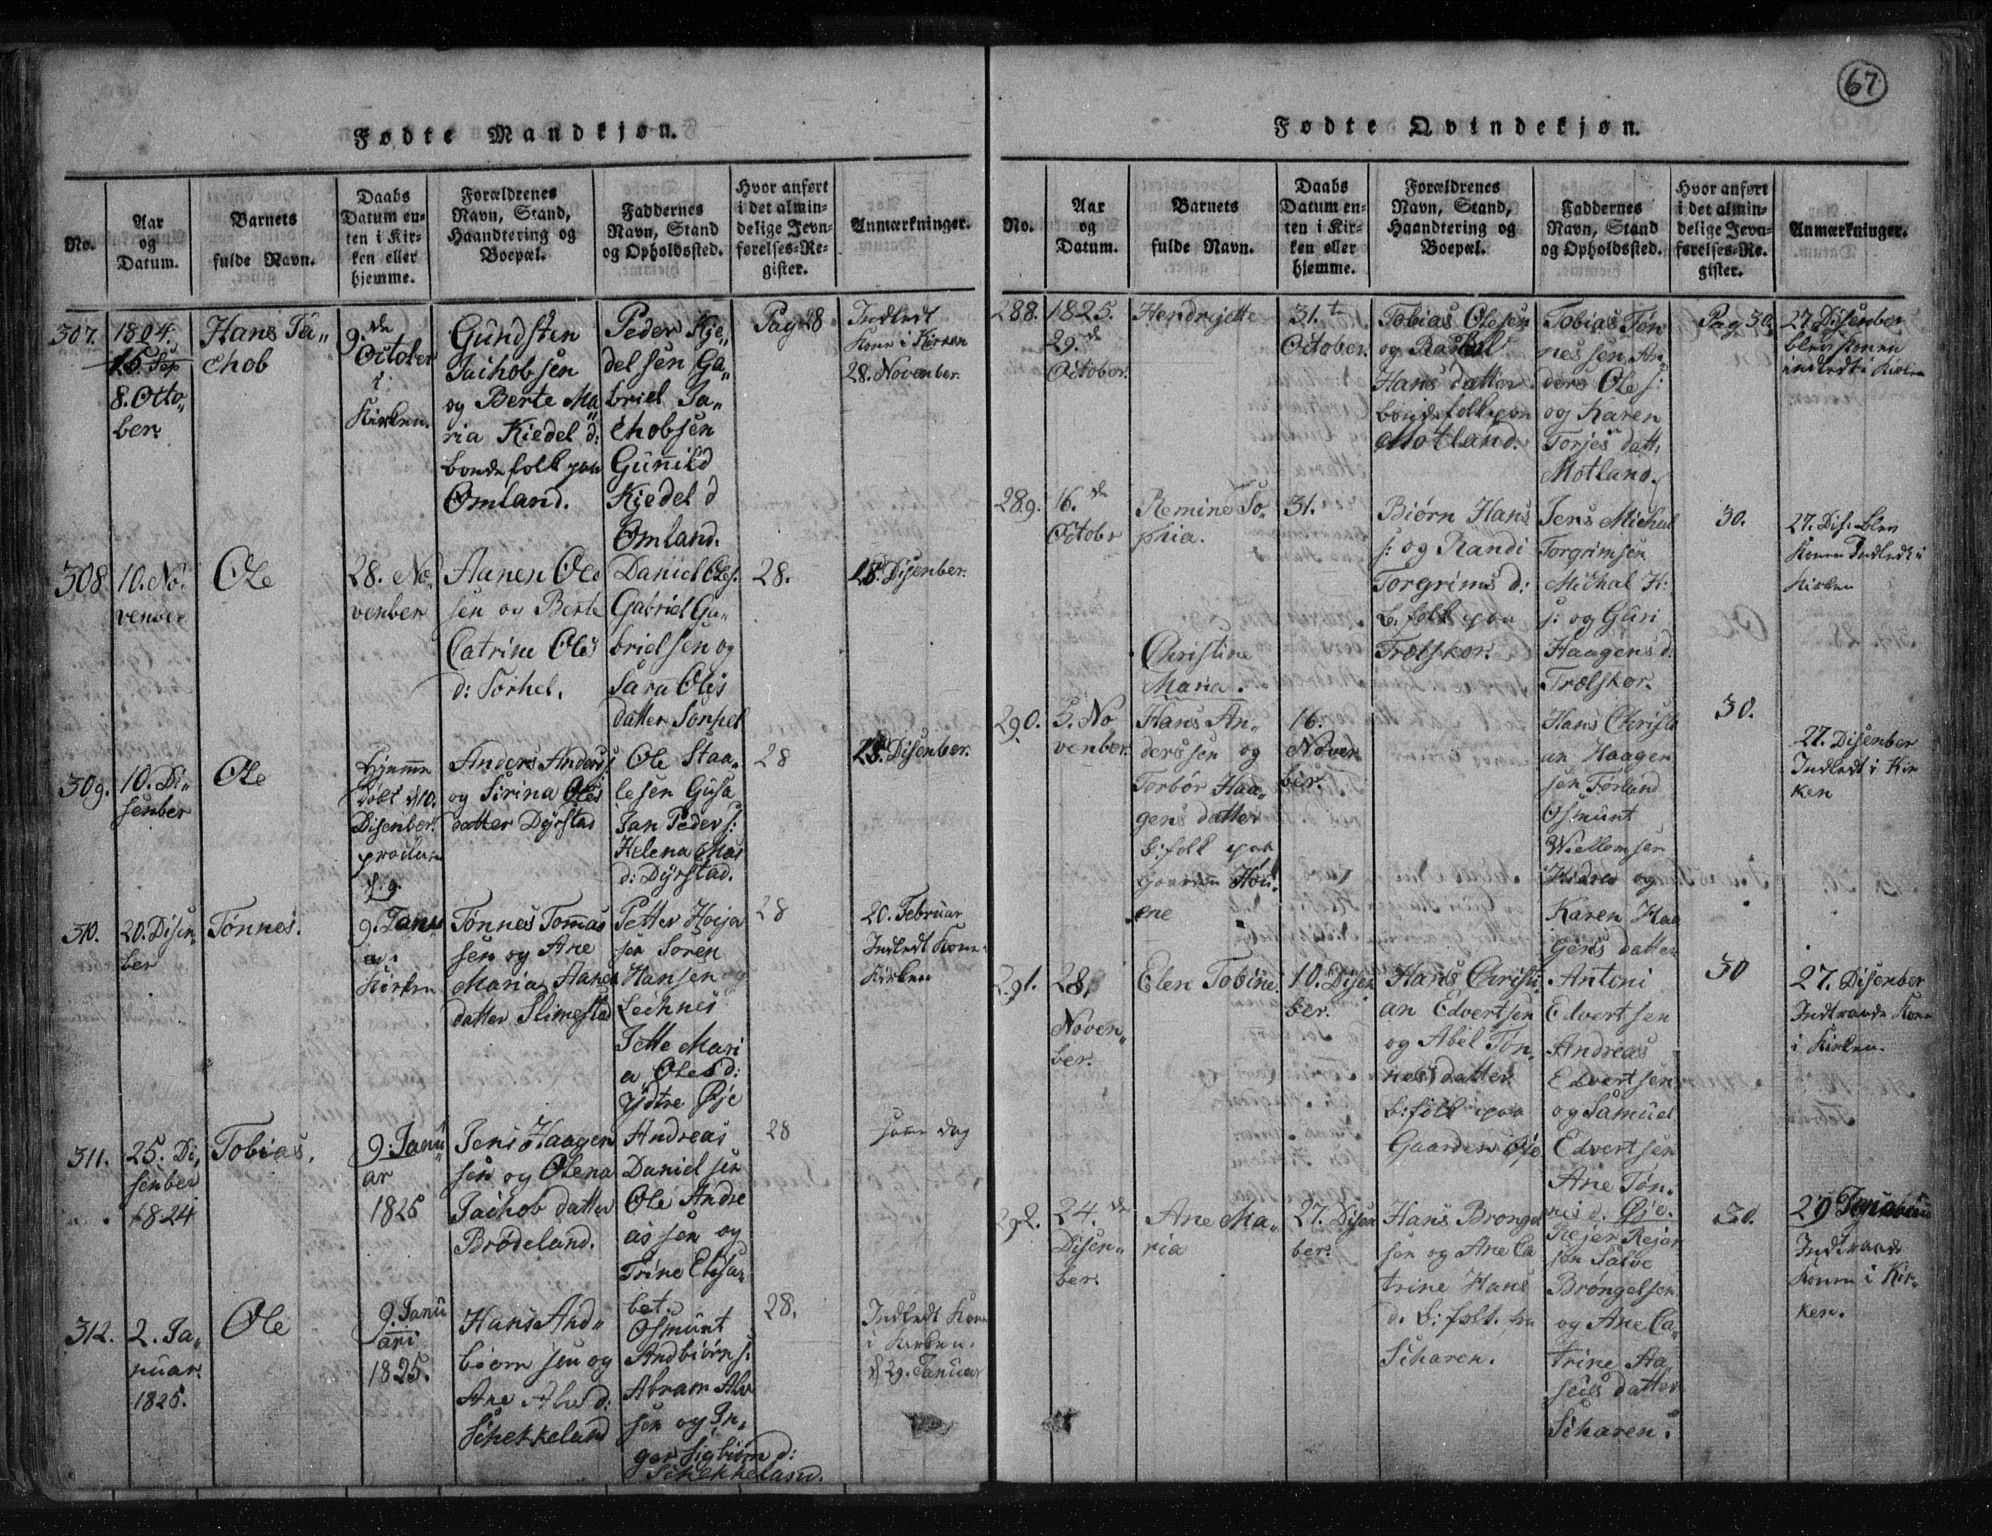 67
Fødte Mandkjøn.
No.
Aar
og
Datum.
Barnets
fulde Navn.
Daabs
Datum en-
ten i Kir-
ken eller
hjemme.
Forældrenes
Navn, Stand,
Haandtering og
Boepæl.
Faddernes
Navn, Stand
og Opholdssted.
Hvor anført
i det almin-
delige Jevn-
førelses-Re-
gister.
Anmærkninger.
307.
1804.
8. Octo„
ber.
Hans Ja„
chob
9. de
October
i
Kirken.
Gundsten
Jachobsen
og Berte Ma„
ria Kiedel d:
bondefolk paa
Omland.
Peder Kie„
delsen Ga„
briel Ja„
chobsen
Gunild
Kiedel d
Omland.
Pag 28
Indledt
Kone i Kirken
28. November.
308
10. No„
venber
Ole
28. No„
venber
Aanen Ole
sen og Berte
Catrine Oles
d: Sorhel.
Daniel Oles.
Gabriel Ga„
brielsen og
Sara Oles
datter
28.
Disenber.
309.
10. Di„
senber
Ole
Hjemme
døbt d 10.
Disenber.
Anders Anders
og Sirina Oles
datter Dyrstad
Ole Staa„
lesen Gusa
Jan Peder s:
Helena
d: Dyrstad.
28
Disenber.
310.
20. Disen„
ber
Tønnes.
9. Janu
ar i
Kirken
Tønnes Tomas
sen og Ane
Maria Aanen
datter Slimestad
Petter Hoija
sen Soren
Hansen og
Lechnes
Jette Mari
a Oles d:
Ydtre Øje
28
20. Februar
Indledt Kone
Kirken
311.
25. Di„
senber
1824
Tobias.
9. Janu
ar
1825
Jens Haagen
sen og Olena
Jachob datter
Brødeland.
Andreas
Daniel sen
Ole Andre
as sen og
Trine Elisa„
bet.
28
same dag
312.
2. Ja„
nuar.
1825.
Ole
9. Janu
ari
1825.
Hans And„
biørnsen og
Ane d:
Schekkeland
Osmunt
Andbiørn s:
Abram
sen og In„
ger Sigbiørn d:
Schekkeland.
28.
Indledt Kone
i Kirken.
d 29. Januar
Fødte Qvindekjøn.
No.
Aar
og
Datum.
Barnets
fulde Navn.
Daabs
Datum en-
ten i Kir-
ken eller
hjemme.
Forældrenes
Navn, Stand,
Haandtering og
Boepæl.
Faddernes
Navn, Stand
og Opholdssted.
Hvor anført
i det almin-
delige Jevn-
førelses-Re-
gister.
Anmærkninger.
288.
1825.
29. de
October.
Hendrijette
31. t
October.
Tobias Olesen
og Rachel
Hans datter
bondefolk paa
Motland.
Tobias Tøn
nessen An
ders Ole s:
og Karen
Torjes datt.
Motland.
Pag 30.
27. Disenber
blev Konen
indledt i Kirken
289.
16. de
Octobr
Remine So„
phia.
31.
Biørn Hans
s: og Randi
Torgrims d:
b: folk paa
Trælskor.
Jens Michal
Torgrimsen
Michal H:
s: og Guri
Haagens d:
Trælskor.
30.
27. Dis. blev
Konen Indledt i
Kirken
290.
5. No
venber.
Christine
Maria.
Hans An„
derssen og
Torbør Haa„
gens datter
b: folk paa
Gaarden Hou„
ene
16.
Noven
ber.
Hans Christi
an Haagen
sen Førland
Osmunt
Wiellemsen
og
Karen Haa
gens datter
30.
27. Disenber
Indledt i Kir
ken
291.
28.
Noven„
ber.
Elen Tobine.
10. Disen
ber.
Hans Christi„
an Edvertsen
og Abel Tøn„
nes datter
b: folk paa
Gaarden Øje
Antoni
Edvertsen
Andreas
Edvertsen
og Samuel
Edvertsen
Ane Tøn„
nis d. Øje.
30
27. Disenber
Indtraade Kone
i Kirken.
292.
24. de
Disen„
ber.
Ane Ma„
ria
27. Disen
ber.
Hans Brøngel
sen og Ane Ca
trine Hans
d. b: folk. fra
Scharen.
Rejer Rejer
sen Salve
Brøngelsen
og Ane Ca„
trine Aa„
datter
Scharen.
30.
29
Indtraade
Konen i Kir„
ken.